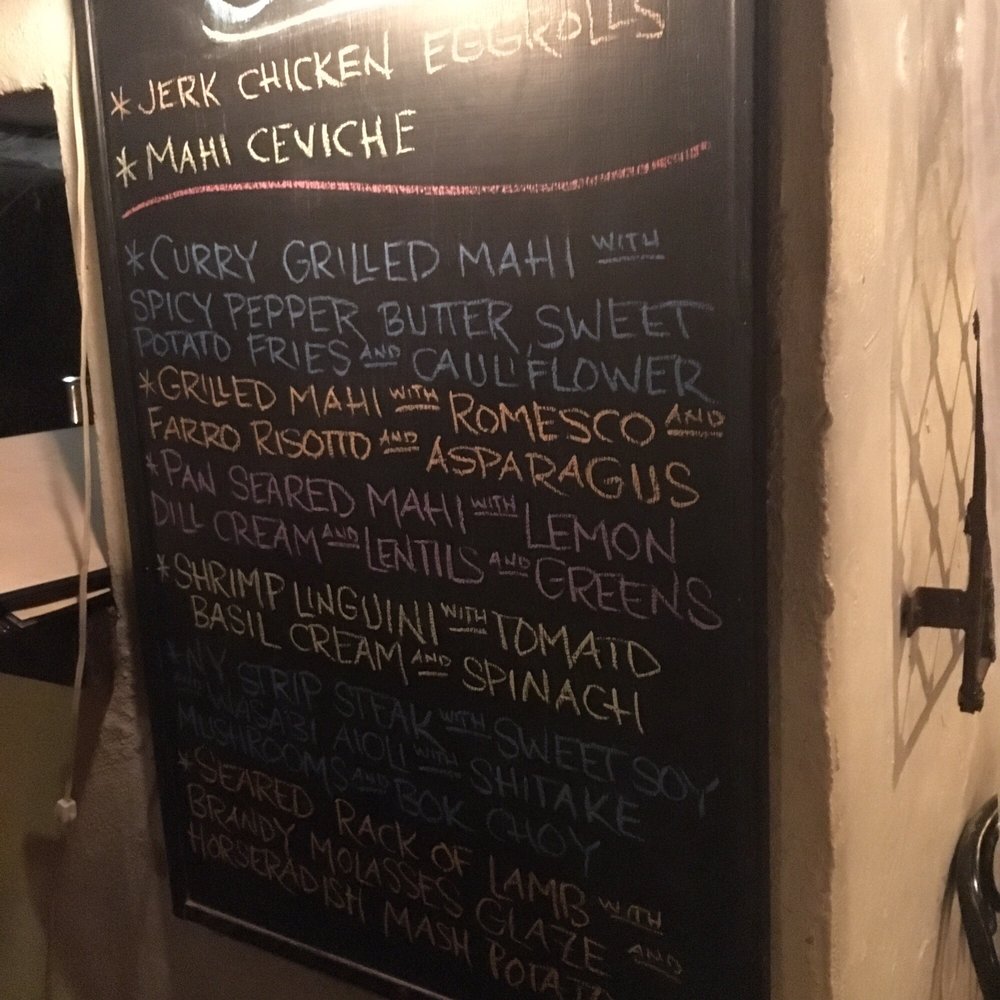 * JERK CHICKEN EGGROLLS
* MAHI CEVICHE
* CURRY GRILLED MAHI WITH
SPICY PEPPER BUTTER, SWEET
POTATO FRIES AND CAULIFLOWER
* GRILLED MAHI WITH ROMESCO AND
FARRO RISOTTO AND ASPARAGUS
* PAN SEARED MAHI WITH LEMON
DILL CREAM AND LENTILS AND GREENS
* SHRIMP LINGUINI WITH TOMATO
BASIL CREAM AND SPINACH
* NY STRIP STEAK WITH SWEET SOY
AND WASABI AIOLI WITH SHITAKE
MUSHROOMS AND BOK CHOY
* SEARED RACK OF LAMB WITH
BRANDY MOLASSES GLAZE AND
HORSERADISH MASH